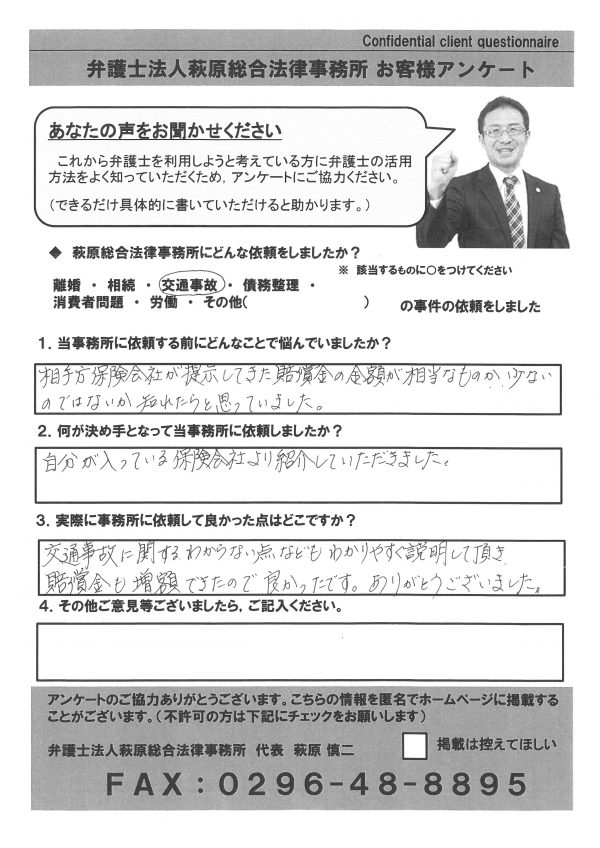 Confidential client questionnaire
弁護士法人萩原総合法律事務所 お客様アンケート
あなたの声をお聞かせください
これから弁護士を利用しようと考えている方に弁護士の活用
方法をよく知っていただくため，アンケートにご協力ください。
（できるだけ具体的に書いていただけると助かります。）
◆ 萩原総合法律事務所にどんな依頼をしましたか？
※ 該当するものに○をつけてください
離婚 ・ 相続 ・ 交通事故 ・ 債務整理 ・
消費者問題 ・ 労働 ・ その他(　　　　) の事件の依頼をしました
1. 当事務所に依頼する前にどんなことで悩んでいましたか？
相手方保険会社が提示してきた賠償金の金額が相当なものか，少ない
のではないか 知れたらと思っていました。
2. 何が決め手となって当事務所に依頼しましたか？
自分が入っている保険会社より紹介していただきました。
3. 実際に事務所に依頼して良かった点はどこですか？
交通事故に関するわからない点などもわかりやすく説明して頂き
賠償金も増額できたので良かったです。ありがとうございました。
4. その他ご意見等ございましたら，ご記入ください。
アンケートのご協力ありがとうございます。こちらの情報を匿名でホームページに掲載する
ことがございます。（不許可の方は下記にチェックをお願いします）
弁護士法人萩原総合法律事務所 代表 萩原 慎二
掲載は控えてほしい
FAX：0296-48-8895